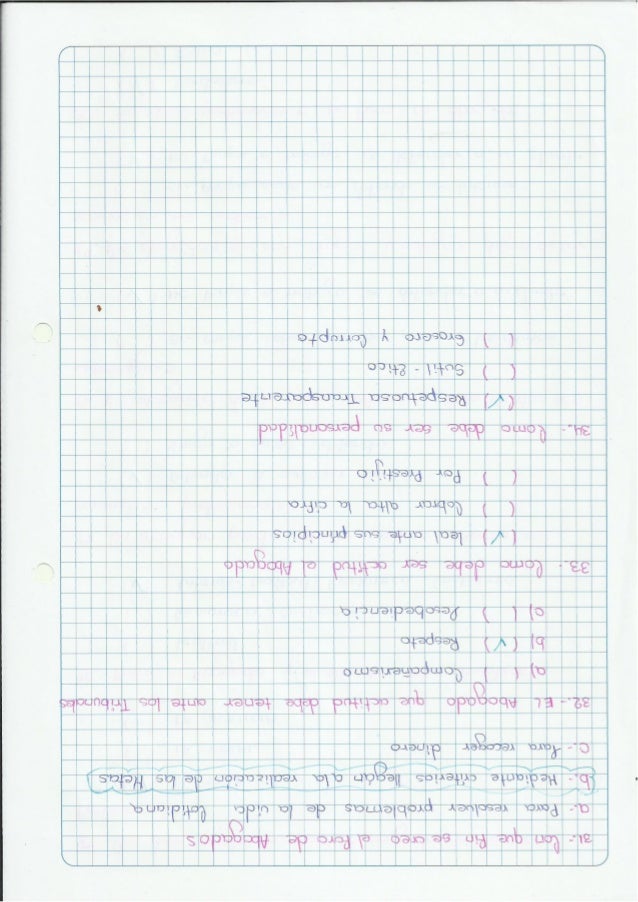 31.- Con que fin se creo el Foro de Abogados
a.- Para resolver problemas de la vida Cotidiana
b.- Mediante criterios llegán a la realización de las Metas
c.- Para recoger dinero
32.- EL Abogado que actitud debe tener ante los Tribunales
a) ( ) Compañerismo
b) (✓) Respeto
c) ( ) Desobediencia
33.- Como debe ser actitud el Abogado
(✓) leal ante sus principios
( ) Cobrar alta la cifra
( ) Por Prestijio
34.- Como debe ser su personalidad
(✓) Respetuosa Transparente
( ) Sutil - ético
( ) Grosero y Corrupto